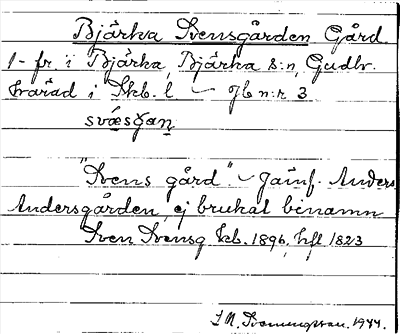 Bjärka Svensgården Gård
1 fr. i Bjärka, Bjärka s:n, Gudh.
härad i Skb. l. – Jb n:r 3.
svǽsgan
"Svens gård". – Jämf. Anders
Andersgården, ej brukat binamn
Sven Svensg kcb. 1896, hfl 1823
1944.